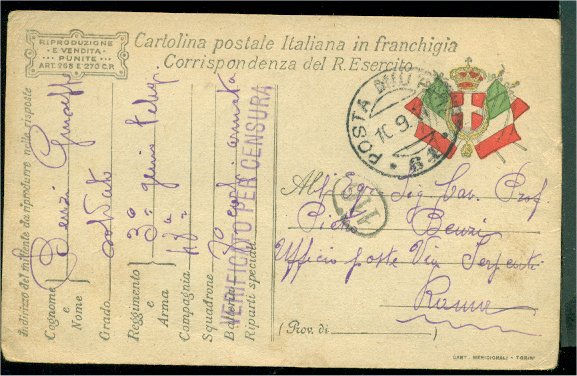 RIPRODUZIONE
E VENDITA
PUNITE
ART. 268 E 270 C.P.
Cartolina postale Italiana in franchigia
Corrispondenza del R. Esercito
POSTA MILITARE
10.9.
Indirizzo del mittente da riprodurre nelle risposte
Cognome e Nome Benzi Giuseppe
Grado soldato
Reggimento e Arma 3° genio Teleg
Compagnia
Squadrone
Batteria armata
Riparti speciali
VERIFICATO PER CENSURA
All'Egr. Sig. Cav. Prof.
Benzi
Ufficio poste Via Serpenti
Roma
(Prov. di )
CART. MERIDIONALI - TORINO